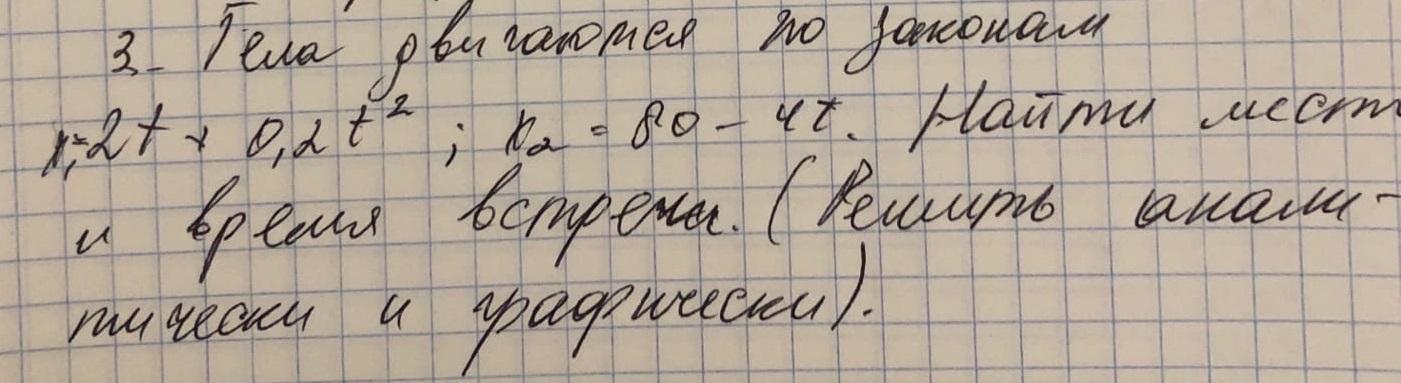 3. Тела двигаются по законам
x₁=2t + 0,2t² ; x₂ = 80 - 4t. Найти мест
и время встречи. (Решить анали-
тически и графически).